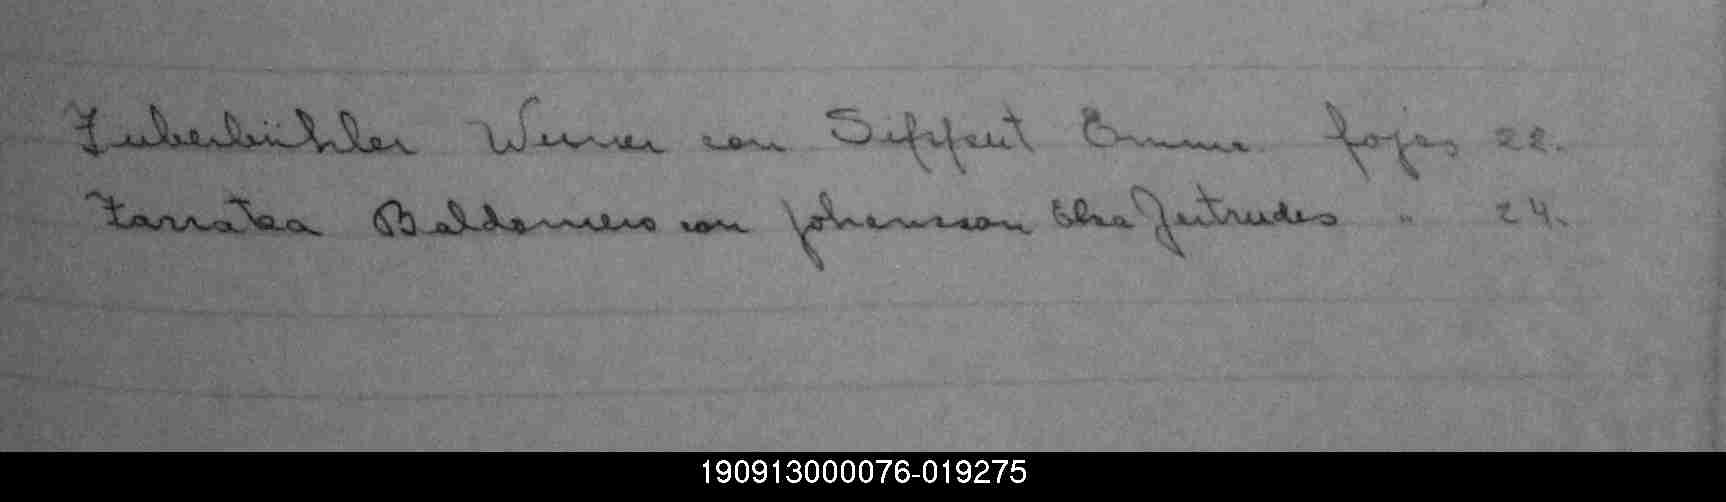 Zuberbühler Werner con Siffert Emma fojas 22.
Zarratea Baldomero con Johansson Elsa Jertrudes " 24.
190913000076-019275